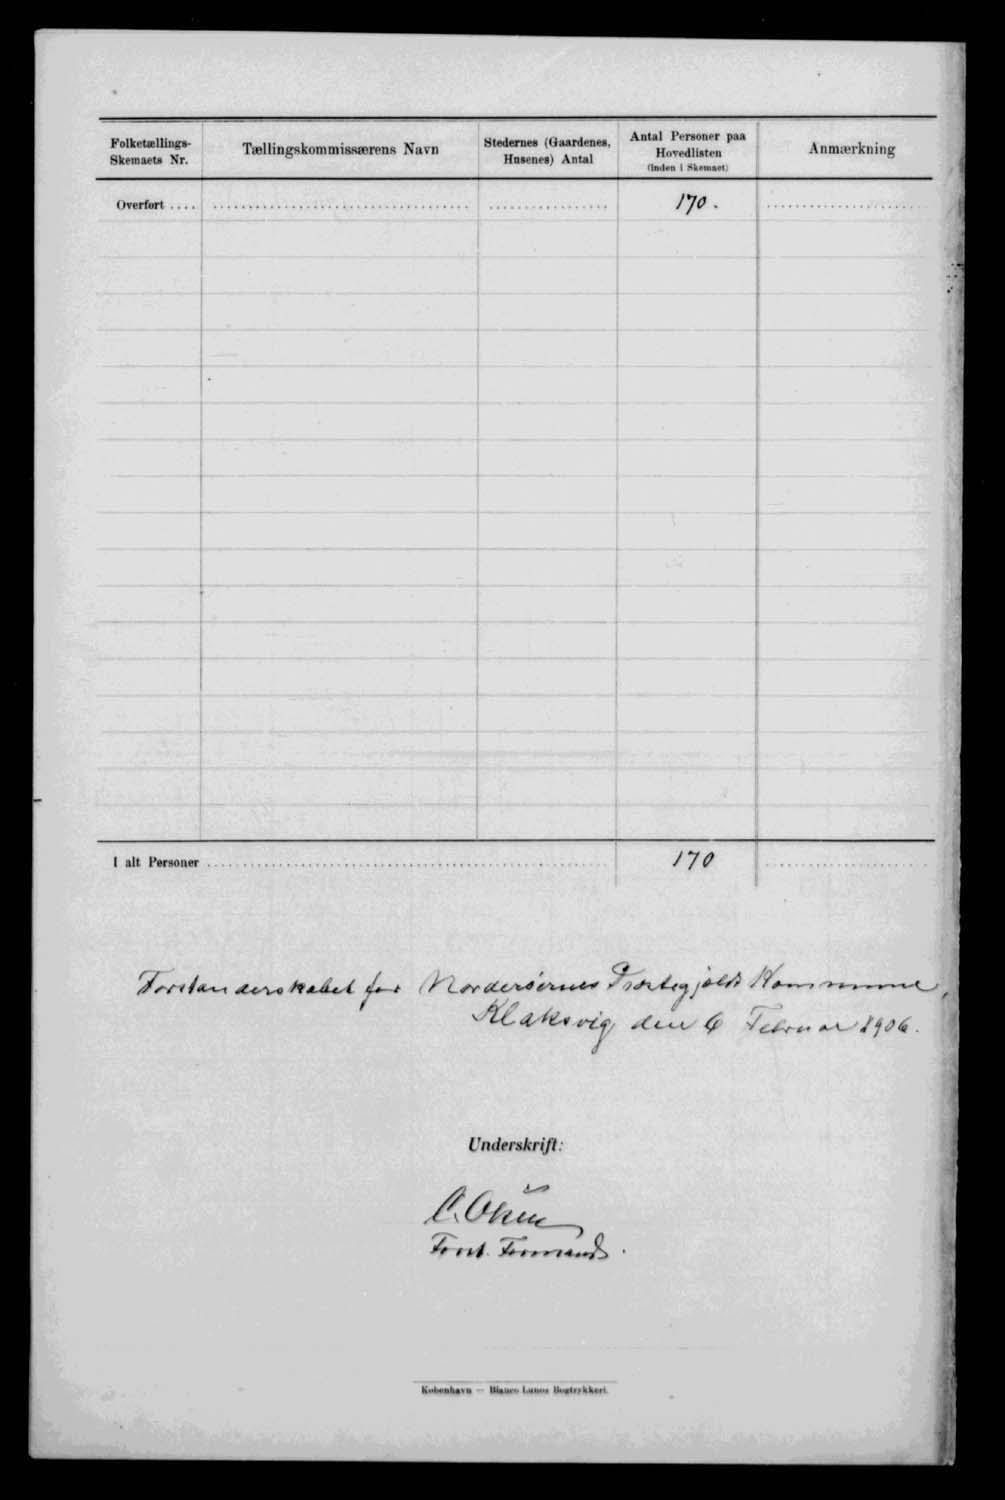 Folketællings-
Skemaets Nr.
Tællingskommissærens Navn
Stedernes (Gaardenes,
Husenes) Antal
Antal Personer paa
Hovedlisten
(inden i Skemaet)
Anmærkning
Overført .... 170.
I alt Personer 170
Forstanderskabet for Norderöernes Præstegjelds Kommune,
Klaksvig den 6 Februar 1906.
Underskrift:
C.
Forst. Formand
København — Bianco Lunos Bogtrykkeri.